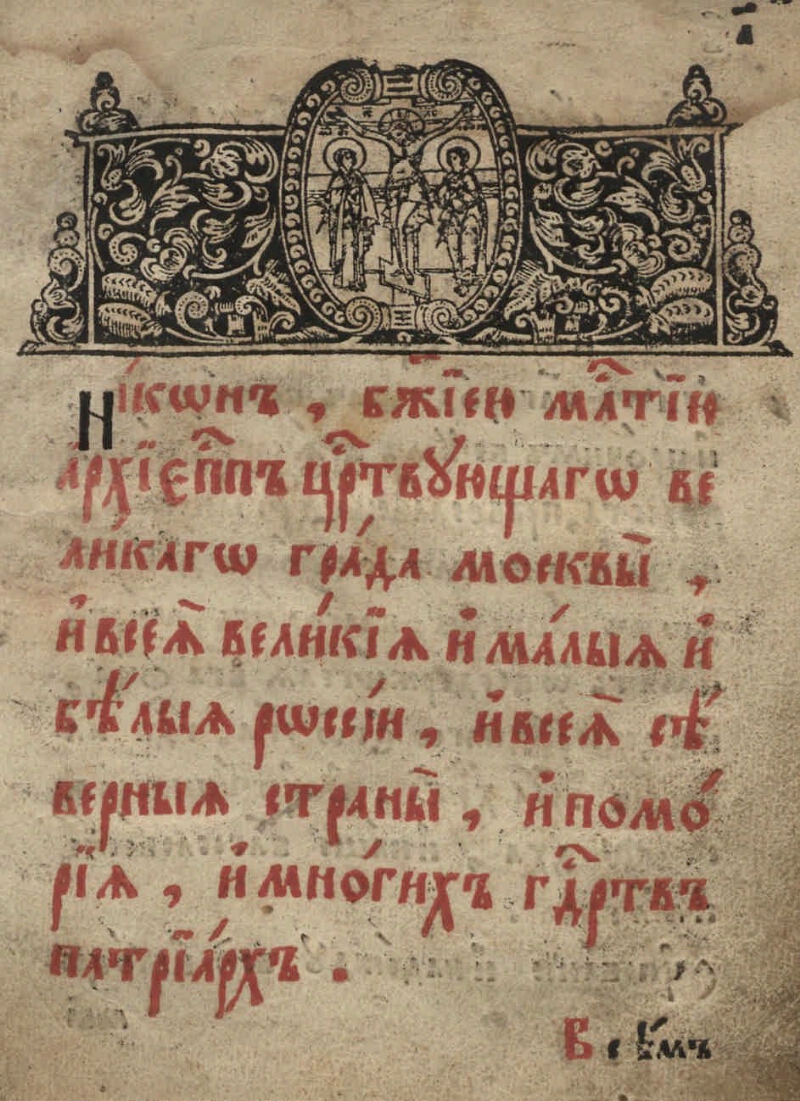 Нікѡнъ, бж҃їею мл҃тїю
а҆рхїєп҃пъ цр҃твꙋющагѡ ве
ли́кагѡ гра́да москвы̀,
и҆ всеѧ̀ вели́кїѧ и҆ ма́лыѧ и҆
бѣ́лыѧ рѡссі́и, и҆ всеѧ̀ сѣ́
верныѧ страны̀, и҆ помо́
рїѧ, и҆ мно́гихъ гдⷭ҇ртвъ
патрїа́рхъ.
Всѣ́мъ